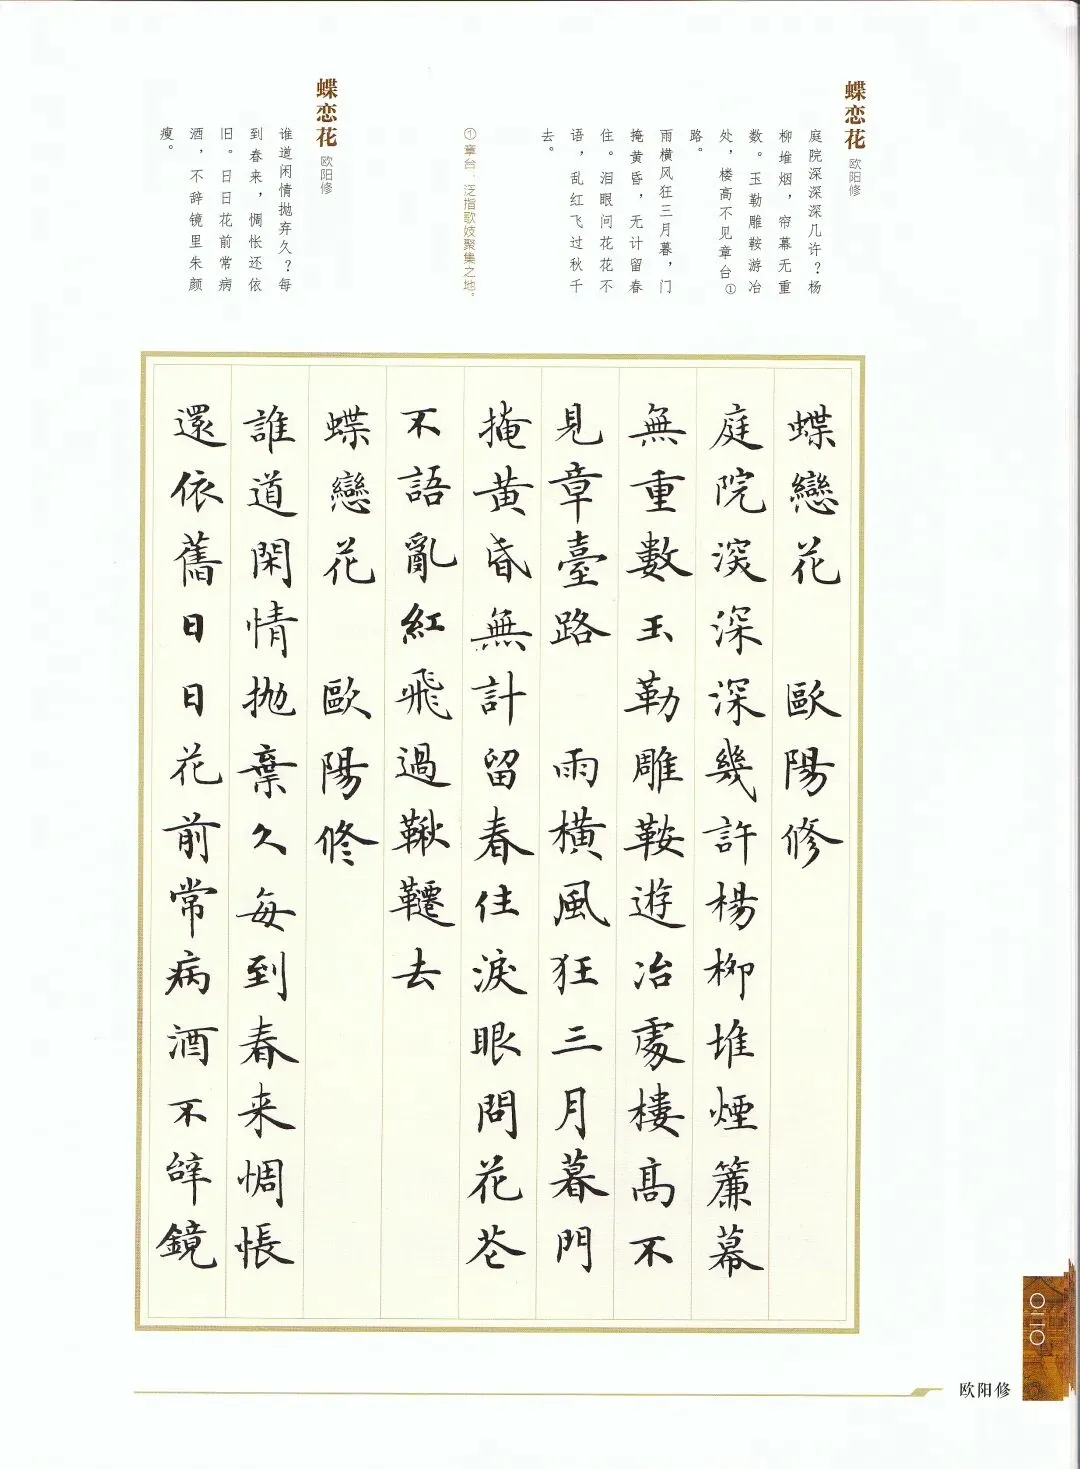 蝶恋花
欧阳修
庭院深深深几许？杨
柳堆烟，帘幕无重
数。玉勒雕鞍游冶
处，楼高不见章台①
路。
雨横风狂三月暮，门
掩黄昏，无计留春
住。泪眼问花花不
语，乱红飞过秋千
去。
①章台：泛指歌妓聚集之地。
蝶恋花
欧阳修
谁道闲情抛弃久？每
到春来，惆怅还依
旧。日日花前常病
酒，不辞镜里朱颜
瘦。
蝶戀花 歐陽修
庭院深深深幾許楊柳堆煙簾幕
無重數玉勒雕鞍遊冶處樓高不
見章臺路 雨橫風狂三月暮門
掩黃昏無計留春住淚眼問花花
不語亂紅飛過鞦韆去
蝶戀花 歐陽修
誰道閑情拋棄久每到春来惆悵
還依舊日日花前常病酒不辭鏡
欧阳修